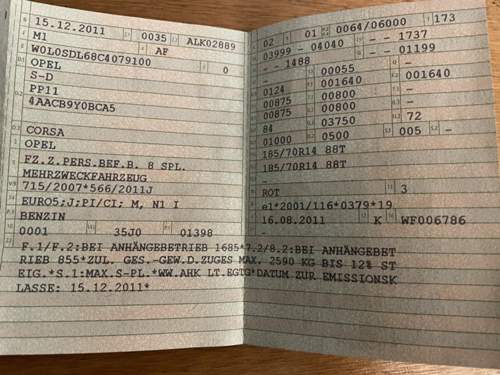 B 15.12.2011 2.1 0035 2.2 ALK02889
J M1 4 AF
E W0L0SDL68C4079100 3 0
D.1 OPEL
D.2 S-D
PP11
4AACB9Y0BCA5
D.3 CORSA
2 OPEL
5 FZ.Z.PERS.BEF.B. 8 SPL.
MEHRZWECKFAHRZEUG
V.9 715/2007*566/2011J
14 EURO5;J;PI/CI; M, N1 I
P.3 BENZIN
10 0001 14.1 35J0 P.1 01398
22 F.1/F.2:BEI ANHÄNGEBETRIEB 1685*7.2/8.2:BEI ANHÄNGEBET
RIEB 855*ZUL. GES.-GEW.D.ZUGES MAX. 2590 KG BIS 12% ST
EIG.*S.1:MAX.S-PL.*WW.AHK LT.EGTG*DATUM ZUR EMISSIONSK
LASSE: 15.12.2011*
02 01 0064/06000 173
03999 - 04040 - - 1737
- - 1488 - 01199
- 00055 -
0124 001640 001640
00875 00800 -
00875 00800 -
84 03750 72
01000 0500 S.1 005 S.2 -
185/70R14 88T
185/70R14 88T
-
ROT 11 3
e1*2001/116*0379*19
16.08.2011 K WF006786
-